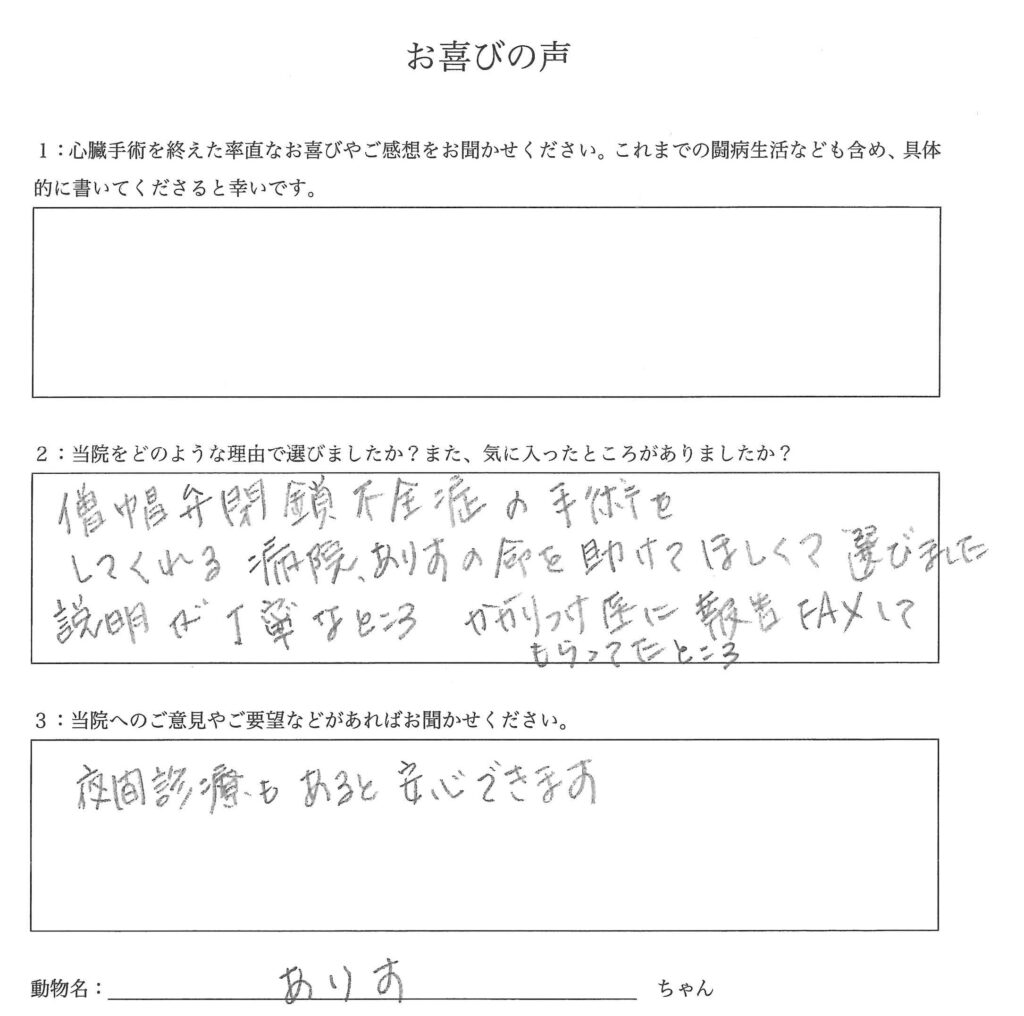 お喜びの声
1：心臓手術を終えた率直なお喜びやご感想をお聞かせください。これまでの闘病生活なども含め、具体
的に書いてくださると幸いです。
2：当院をどのような理由で選びましたか？また、気に入ったところがありましたか？
僧帽弁閉鎖不全症の手術を
してくれる病院、ありすの命を助けてほしくて選びました
説明が丁寧なところ かかりつけ医に報告FAXして
もらってたところ
3：当院へのご意見やご要望などがあればお聞かせください。
夜間診療もあると安心できます
動物名：ありす ちゃん